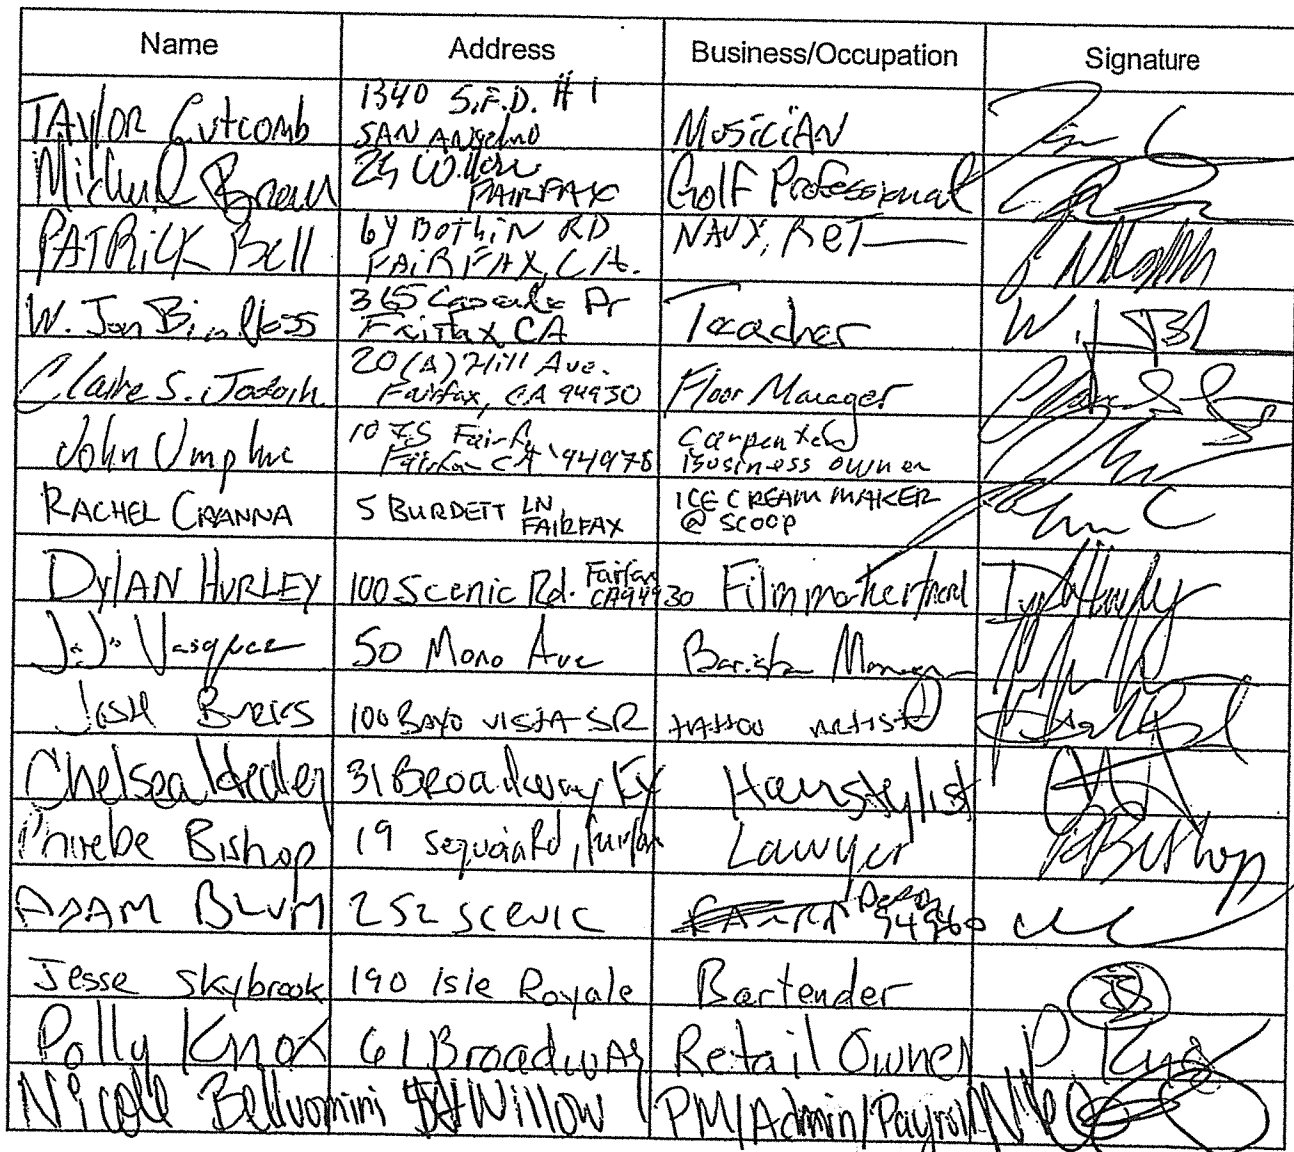 Name Address Business/Occupation Signature
TAYLOR Cutcomb 1340 S.F.D. #1 SAN ANSELMO MUSICIAN
Michael Brown Willow FAIRFAX Golf Professional
PATRICK Bell 64 BOTHIN RD FAIRFAX, CA. NAVY, RET
W. Jon 365 Cascade Dr Fairfax CA Teacher
Claire S. 20 (A) Hill Ave. Fairfax, CA 94930 Floor Manager
John Fairfax CA 94978 Carpenter Business owner
RACHEL CANNA 5 BURDETT LN, FAIRFAX ICE CREAM MAKER @ SCOOP
DYLAN HURLEY 100 Scenic Rd. Fairfax CA 94930 Filmmaker
J.J. Vasquez 50 Mono Ave Barista Manager
100 Bayo VISTA SR TATTOO ARTIST
Chelsea Healey 31 Broadway Fx Hairstylist
Phoebe Bishop 19 Sequoia Rd, Fairfax Lawyer PBishop
ADAM BLUM 252 SCENIC 94960
Jesse Skybrook 190 Isle Royale Bartender JS
Polly Knox 61 Broadway Retail Owner P Knox
Nicole Bellvomini Willow PM/Admin/Payroll